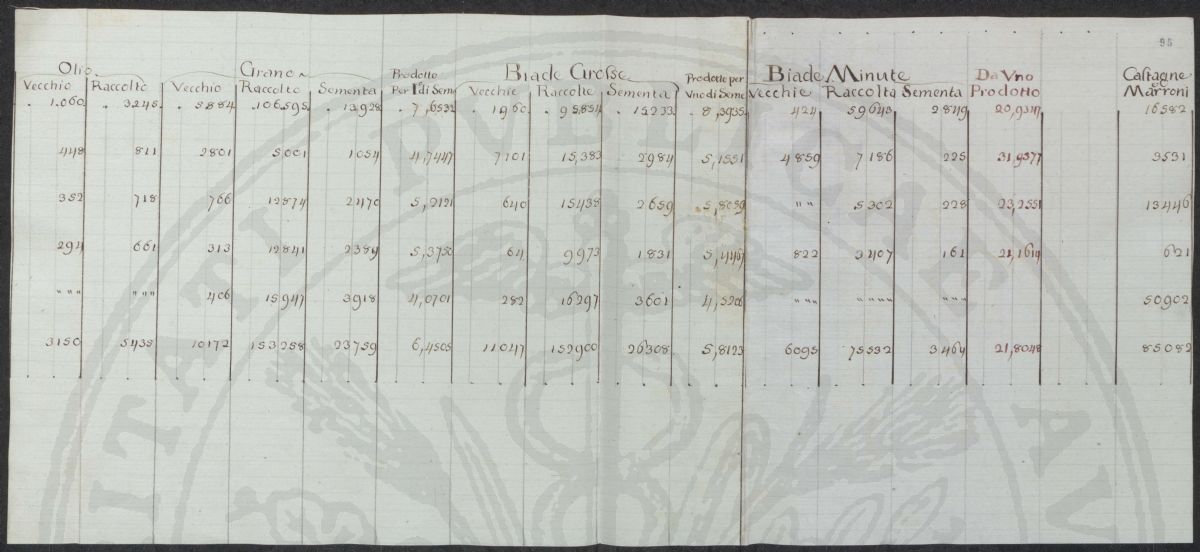 95
Olio Grano Prodotto Per 1 di Seme Biade Grosse Prodotto per Uno di Seme Biade Minute Da Uno Prodotto Castagne e Marroni
Vecchio Raccolto Vecchio Raccolto Sementa Vecchie Raccolte Sementa Vecchie Raccolta Sementa
1.060 3245 5884 106595 13928 7,6532 1960 95854 15233 8,3935 424 59643 2849 20,9347 16582
448 811 2801 5001 1054 4,7447 7101 15,383 2984 5,1551 4859 7186 225 31,9377 3531
352 718 766 12874 2470 5,2121 640 15438 2659 5,8059 "" 5302 228 23,2551 13446
294 661 313 12841 2389 5,3750 64 9973 1831 5,4467 822 3407 161 21,1614 621
""" """ 406 15947 3918 4,0701 282 16297 3601 4,5206 """ """" """ 50902
3150 5435 10172 153258 23759 6,4505 11047 152900 26308 5,8123 6095 75532 3464 21,8048 85082
PUBLICAE